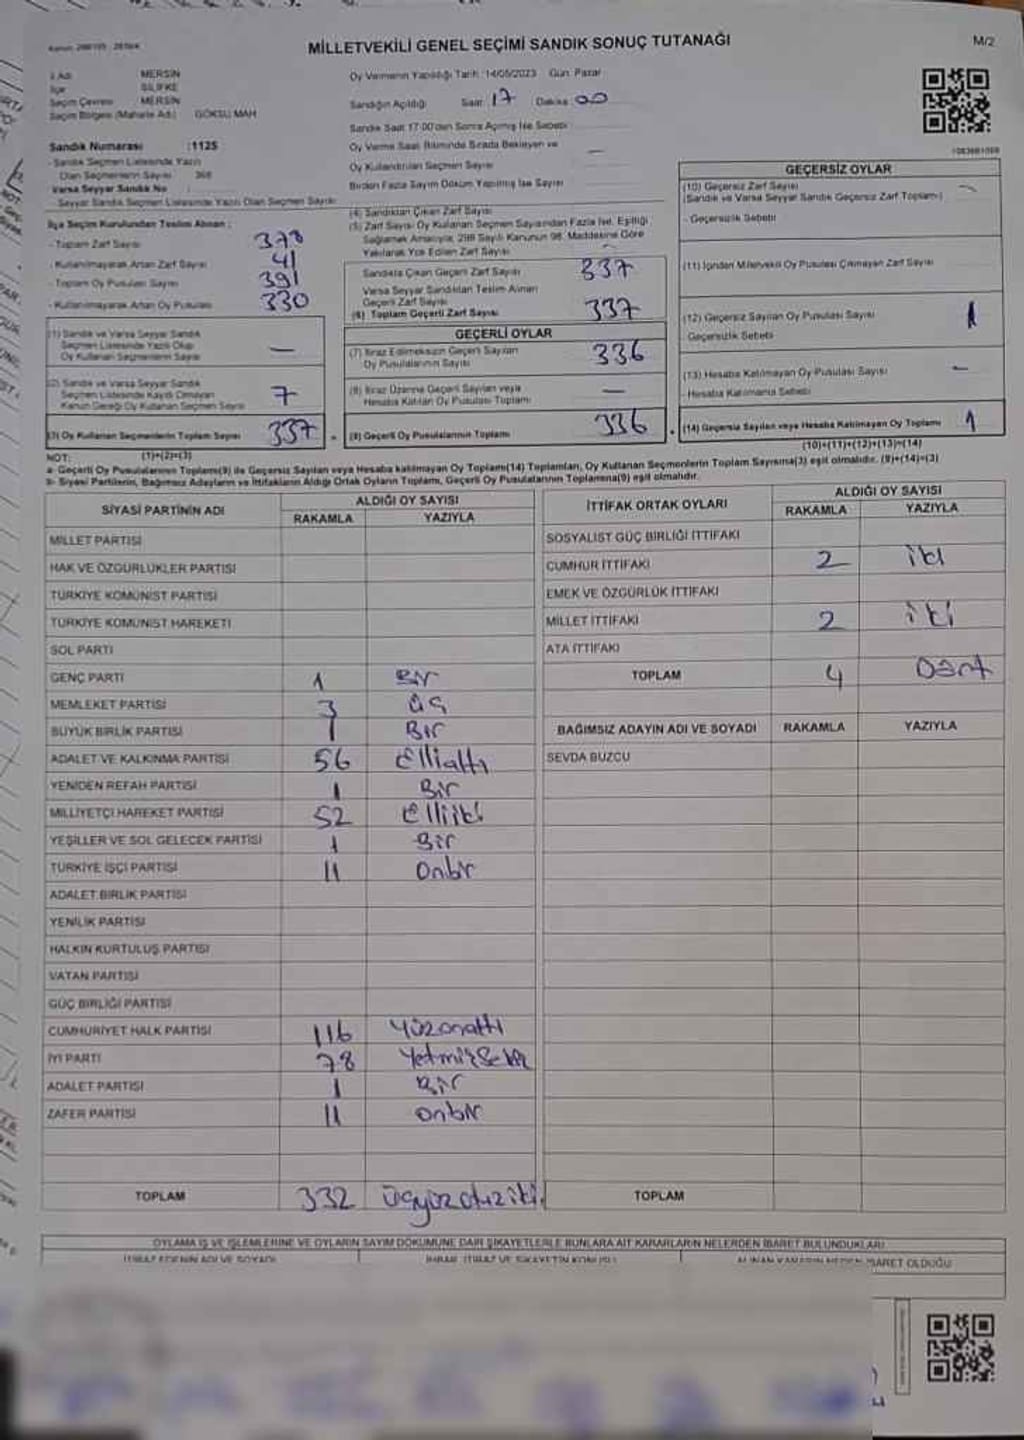 MİLLETVEKİLİ GENEL SEÇİMİ SANDIK SONUÇ TUTANAĞI
M/2
İl Adı MERSİN
İlçe SİLİFKE
Seçim Çevresi MERSİN
Seçim Bölgesi (Mahalle Adı) GÖKSU MAH
Sandık Numarası :1125
- Sandık Seçmen Listesinde Yazılı
Olan Seçmenlerin Sayısı 368
Varsa Seyyar Sandık No
Seyyar Sandık Seçmen Listesinde Yazılı Olan Seçmen Sayısı
Oy Vermenin Yapıldığı Tarih :14/05/2023 Gün: Pazar
Sandığın Açıldığı Saat 17 Dakika 00
Sandık Saat 17:00'den Sonra Açılmış İse Sebebi
Oy Verme Saati Bitiminde Sırada Bekleyen ve
Oy Kullandırılan Seçmen Sayısı —
Birden Fazla Sayım Döküm Yapılmış İse Sayısı
İlçe Seçim Kurulundan Teslim Alınan :
- Toplam Zarf Sayısı 378
- Kullanılmayarak Artan Zarf Sayısı 41
- Toplam Oy Pusulası Sayısı 391
- Kullanılmayarak Artan Oy Pusulası 330
(1) Sandık ve Varsa Seyyar Sandık
Seçmen Listesinde Yazılı Olup
Oy Kullanan Seçmenlerin Sayısı —
(2) Sandık ve Varsa Seyyar Sandık
Seçmen Listesinde Kaydı Olmayan
Kanun Gereği Oy Kullanan Seçmen Sayısı 7
(3) Oy Kullanan Seçmenlerin Toplam Sayısı 337
(1)+(2)=(3)
(4) Sandıktan Çıkan Zarf Sayısı
(5) Zarf Sayısı Oy Kullanan Seçmen Sayısından Fazla İse, Eşitliği
Sağlamak Amacıyla, 298 Sayılı Kanunun 98. Maddesine Göre
Yakılarak Yok Edilen Zarf Sayısı
Sandıkta Çıkan Geçerli Zarf Sayısı 337
Varsa Seyyar Sandıktan Teslim Alınan
Geçerli Zarf Sayısı
(6) Toplam Geçerli Zarf Sayısı 337
GEÇERLİ OYLAR
(7) İtiraz Edilmeksizin Geçerli Sayılan
Oy Pusulalarının Sayısı 336
(8) İtiraz Üzerine Geçerli Sayılan veya
Hesaba Katılan Oy Pusulası Toplamı —
(9) Geçerli Oy Pusulalarının Toplamı 336
GEÇERSİZ OYLAR
(10) Geçersiz Zarf Sayısı
(Sandık ve Varsa Seyyar Sandık Geçersiz Zarf Toplamı)
- Geçersizlik Sebebi
(11) İçinden Milletvekili Oy Pusulası Çıkmayan Zarf Sayısı
(12) Geçersiz Sayılan Oy Pusulası Sayısı 1
Geçersizlik Sebebi
(13) Hesaba Katılmayan Oy Pusulası Sayısı —
- Hesaba Katılmama Sebebi
(14) Geçersiz Sayılan veya Hesaba Katılmayan Oy Toplamı 1
(10)+(11)+(12)+(13)=(14)
NOT:
a- Geçerli Oy Pusulalarının Toplamı(9) ile Geçersiz Sayılan veya Hesaba katılmayan Oy Toplamı(14) Toplamları, Oy Kullanan Seçmenlerin Toplam Sayısına(3) eşit olmalıdır. (9)+(14)=(3)
b- Siyasi Partilerin, Bağımsız Adayların ve İttifakların Aldığı Ortak Oyların Toplamı, Geçerli Oy Pusulalarının Toplamına(9) eşit olmalıdır.
SİYASİ PARTİNİN ADI ALDIĞI OY SAYISI
RAKAMLA YAZIYLA
MİLLET PARTİSİ
HAK VE ÖZGÜRLÜKLER PARTİSİ
TÜRKİYE KOMÜNİST PARTİSİ
TÜRKİYE KOMÜNİST HAREKETİ
SOL PARTİ
GENÇ PARTİ 1 Bir
MEMLEKET PARTİSİ 3 üç
BÜYÜK BİRLİK PARTİSİ 1 Bir
ADALET VE KALKINMA PARTİSİ 56 Elliatı
YENİDEN REFAH PARTİSİ 1 Bir
MİLLİYETÇİ HAREKET PARTİSİ 52 Elliiki
YEŞİLLER VE SOL GELECEK PARTİSİ 1 Bir
TÜRKİYE İŞÇİ PARTİSİ 11 Onbir
ADALET BİRLİK PARTİSİ
YENİLİK PARTİSİ
HALKIN KURTULUŞ PARTİSİ
VATAN PARTİSİ
GÜÇ BİRLİĞİ PARTİSİ
CUMHURİYET HALK PARTİSİ 116 Yüzonaltı
İYİ PARTİ 78 Yetmişsekiz
ADALET PARTİSİ 1 Bir
ZAFER PARTİSİ 11 onbir
TOPLAM 332 üçyüzotuziki
İTTİFAK ORTAK OYLARI ALDIĞI OY SAYISI
RAKAMLA YAZIYLA
SOSYALİST GÜÇ BİRLİĞİ İTTİFAKI
CUMHUR İTTİFAKI 2 iki
EMEK VE ÖZGÜRLÜK İTTİFAKI
MİLLET İTTİFAKI 2 iki
ATA İTTİFAKI
TOPLAM 4 Dört
BAĞIMSIZ ADAYIN ADI VE SOYADI RAKAMLA YAZIYLA
SEVDA BUZCU
TOPLAM
OYLAMA İŞ VE İŞLEMLERİNE VE OYLARIN SAYIM DÖKÜMÜNE DAİR ŞİKAYETLERLE BUNLARA AİT KARARLARIN NELERDEN İBARET BULUNDUKLARI
İTİRAZ EDENİN ADI VE SOYADI